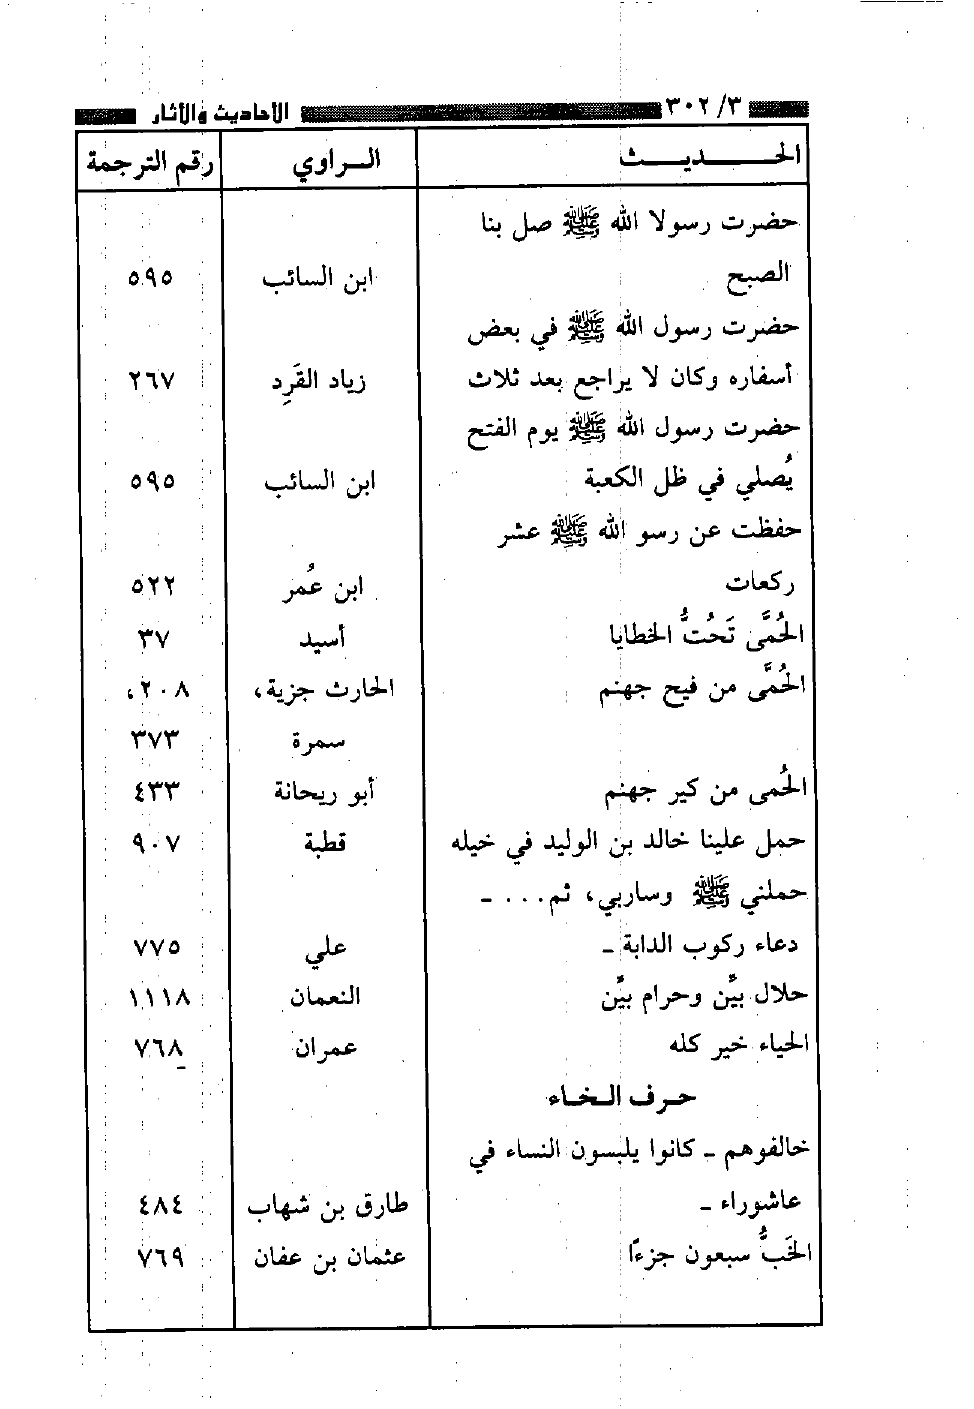 ٣٠٢/٣ الأحاديث والآثار
الحـــديـــث الـــراوي رقم الترجمة
حضرت رسولا الله ﷺ صل بنا
الصبح ابن السائب ٥٩٥
حضرت رسول الله ﷺ في بعض
أسفاره وكان لا يراجع بعد ثلاث زياد القَرِد ٢٦٧
حضرت رسول الله ﷺ يوم الفتح
يُصلي في ظل الكعبة ابن السائب ٥٩٥
حفظت عن رسو الله ﷺ عشر
ركعات ابن عُمر ٥٢٢
الحُمَّى تَحُتُّ الخطايا أسيد ٣٧
الحُمَّى من فيح جهنم الحارث جزية، ٢٠٨،
سمرة ٣٧٣
الحُمى من كير جهنم أبو ريحانة ٤٣٣
حمل علينا خالد بن الوليد في خيله قطبة ٩٠٧
حملني ﷺ وساربي، ثم.... ـ
دعاء ركوب الدابة ـ علي ٧٧٥
حلال بيَّن وحرام بيَّن النعمان ١١١٨
الحياء خير كله عمران ٧٦٨
حـرف الـخـاء
خالفوهم ـ كانوا يلبسون النساء في
عاشوراء ـ طارق بن شهاب ٤٨٤
الخَبُّ سبعون جزءًا عثمان بن عفان ٧٦٩